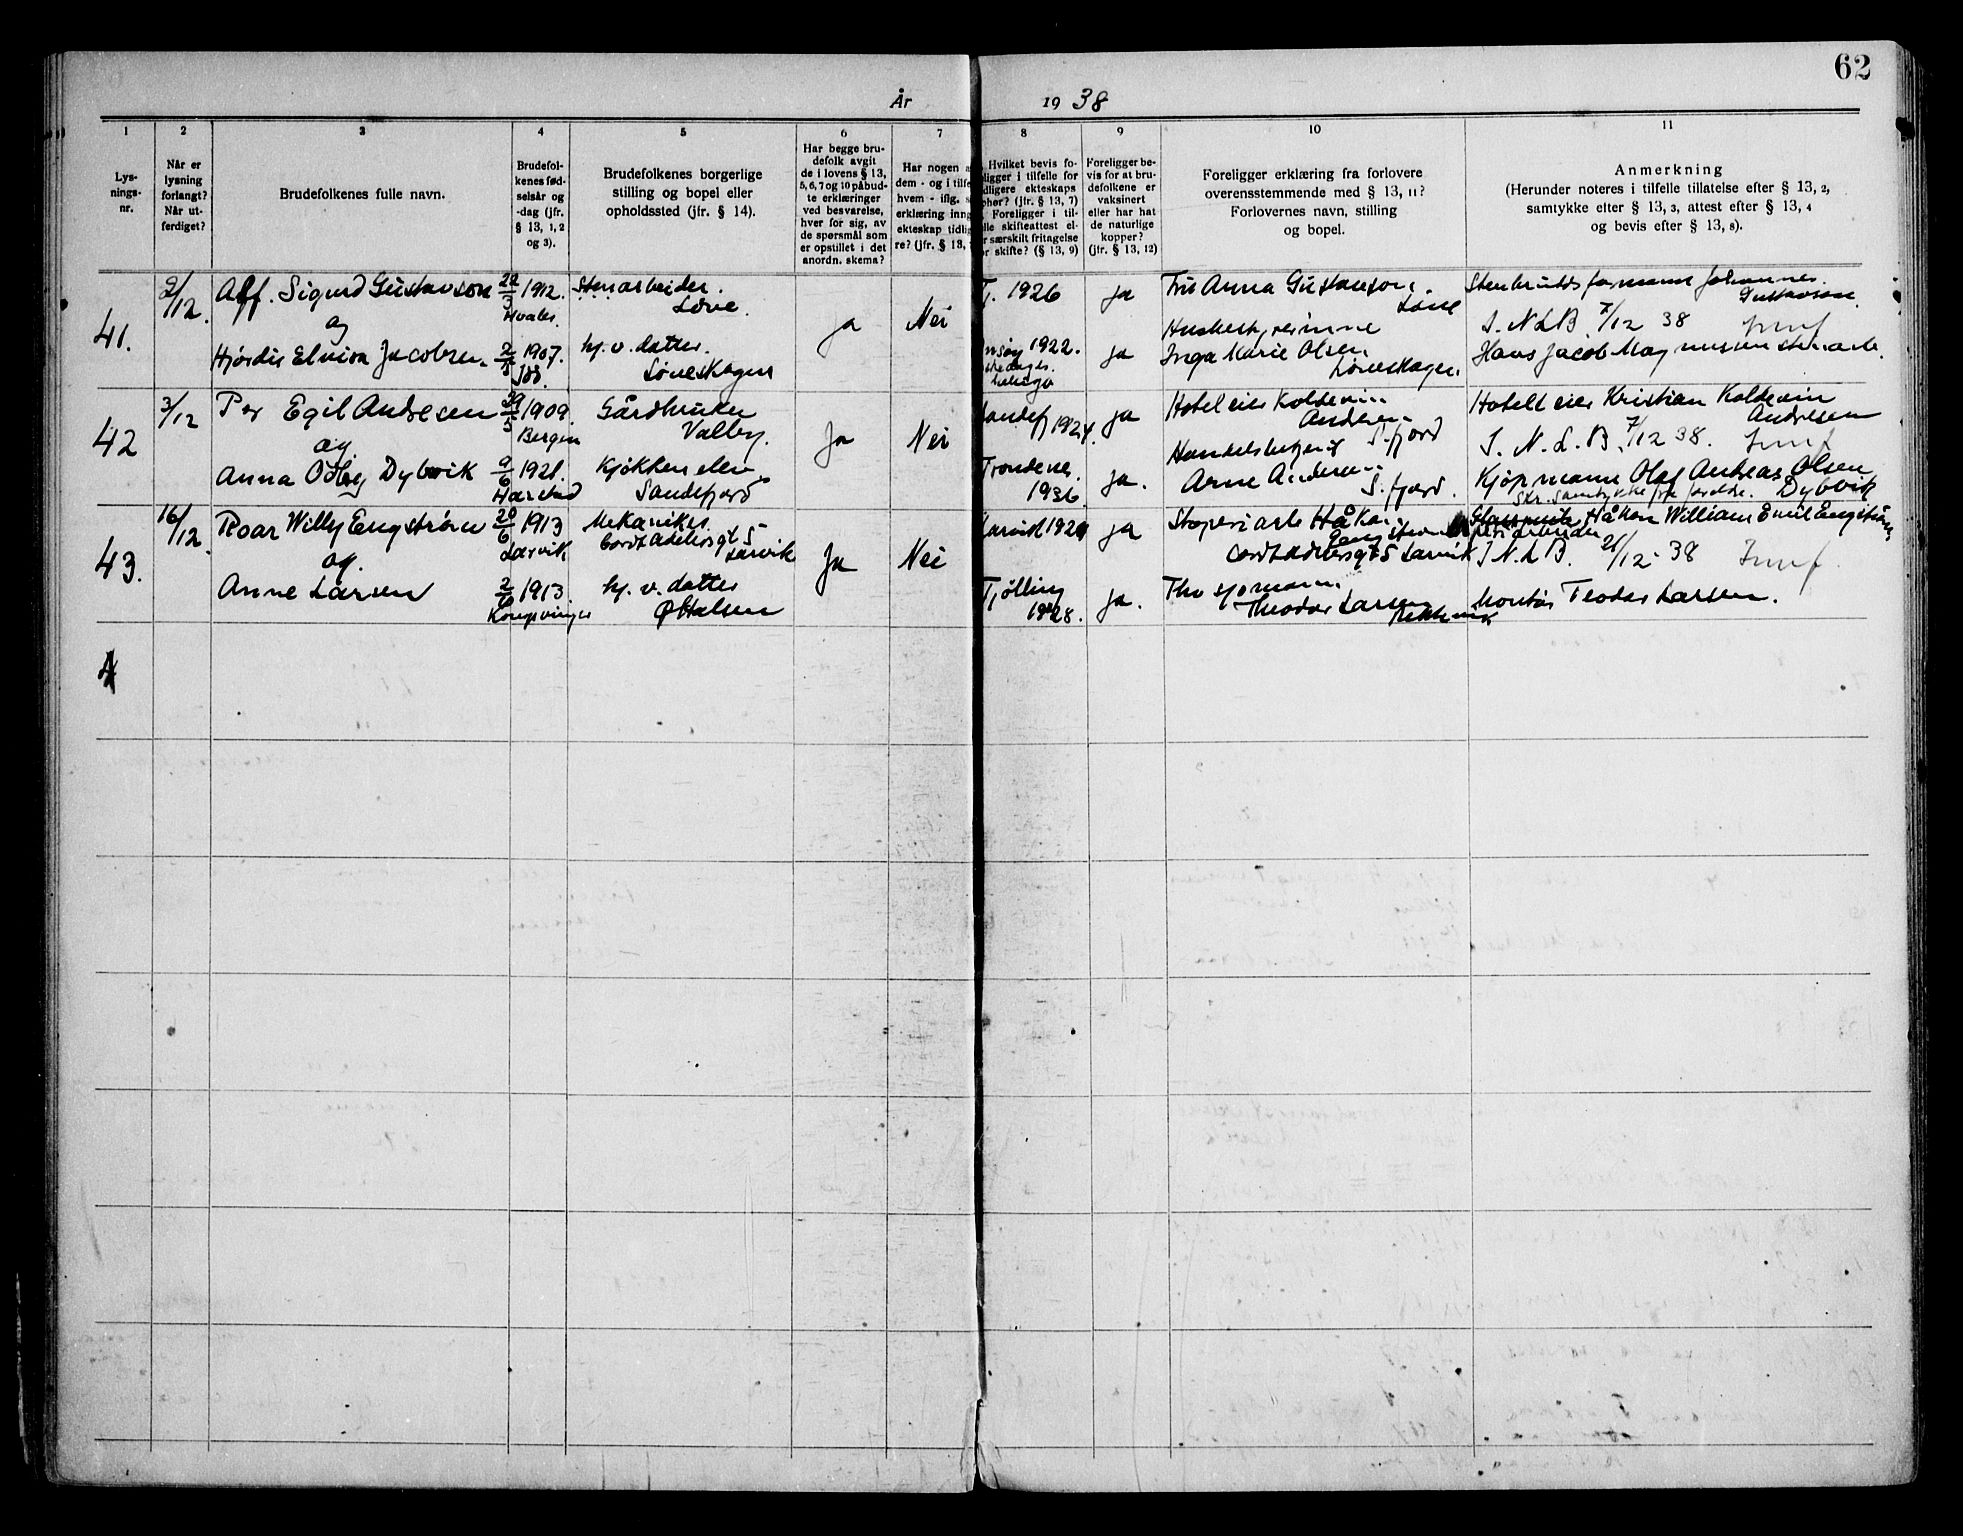 62
År 1938
1 2 3 4 5 6 7 8 9 10 11
Lys-
nings-
nr.
Når er
lysning
forlangt?
Når ut-
ferdiget?
Brudefolkenes fulle navn.
Brudefol-
kenes fød-
selsår og
-dag (jfr.
§ 13, 1, 2
og 3).
Brudefolkenes borgerlige
stilling og bopel eller
opholdssted (jfr. § 14).
Har begge bru-
defolk avgit
de i lovens § 13,
5, 6, 7 og 10 påbud-
te erklæringer
ved besvarelse,
hver for sig, av
de spørsmål som
er opstillet i det
anordn. skema?
Har nogen a
dem - og i tilfe
hvem - iflg. s
erklæring inng
ekteskap tidlig
re? (jfr. § 13,
Hvilket bevis fo-
ligger i tilfelle for
dligere ekteskaps
phør? (jfr. § 13, 7)
Foreligger i til-
lle skifteattest el-
r særskilt fritagelse
r skifte? (§ 13, 9)
Foreligger be-
vis for at bru-
defolkene er
vaksinert
eller har hat
de naturlige
kopper?
(jfr. § 13, 12)
Foreligger erklæring fra forlovere
overensstemmende med § 13, 11?
Forlovernes navn, stilling
og bopel.
Anmerkning
(Herunder noteres i tilfelle tillatelse efter § 13, 2,
samtykke efter § 13, 3, attest efter § 13, 4
og bevis efter § 13, 8).
41.
2/12.
Alf. Sigurd Gustavson
og
Hjørdis Elvira Jacobsen.
1912.
Hvaler.
1907.
Stenarbeider.
Løve.
hj. v. datter.
Løveskogen
ja
Nei
T. 1926
1922.
ja
ja
Fru Anna Gustavson.
Løve
Husbestyrerinne
Inga Marie Olsen
Løveskogen.
Stenbruddsformann Johannes
Gustavson.
I. N L B 7/12 38
Hans Jacob Magnussen stenarb.
42
3/12
Per Egil Andresen
og
Anna Odbjg Dybvik
1909.
Bergen
9/6 1921.
Harstad
Gårdbruker
Valby.
Kjøkken elev
Sandefjord
Ja
Nei
andefj 1924.
Trondenes
1936
ja
ja.
Hoteleier Koldevin
Andresen
S.fjord
Handelsbetjent
Arne Andresen
S.fjord.
Hotelleier Kristian Koldevin
Andresen
I. N. L. B. 7/12 38.
Kjøpmann Olaf Andreas Olsen
Skr. samtykke fra foreldr. Dybvik
43.
16/12.
Roar Willy Engstrøm
og.
Anne Larsen
20/6 1913
Larvik
1913
Kongsvinger
Mekaniker.
Cort Adelersgt 5
Larvik
hj. v. datter
Ja
Nei
Tjølling
1928.
ja
ja.
Støperiarb Håkon
Engstrøm
Cort Adelersgt 5 Larvik
Theodor Larsen
Håkon William Emil Engstrøm
I N L B. 21/12 - 38
Montør Teodor Larsen.
4